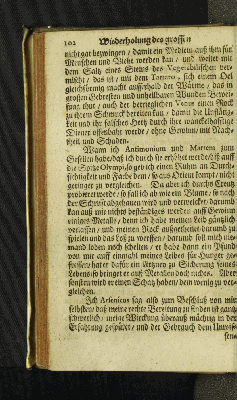 102 Wiederholung des grossen
nicht gar bezwingen / damit ein Medicin auß ihm für
Menschen und Viehe werden kan / und weilet mit
dem Saltz eines Steins des Vegetabilischen ver-
mischt / das ist / mit dem Tartaro, sich einem Oel
gleichförmig macht ausserhalb der Wärme / das in
grossen Gebresten und unheilbaren Wunden Hewei-
sung thut / auch der betrieglichen Venus einen Rock
zu ihrem Schmuck bereiten kan / damit die Unstätig-
keit und ihr falsches Hertz durch ihre wanckelhafftige
Diener offenbahr werde / ohne Gewinn / mit Nach-
theil und Schaden.
Wann ich Antimonium und Martem zum
Gesellen habe / daß ich durch sie erhöhet werde biß auff
die Spitze Olympi, so geb ich einen Rubin an Durch-
sichtigkeit und Farbe dem / so aus Orient kompt / nicht
geringer zu vergleichen. Da aber ich durchs Creutz
probieret werde / so fall ich ab wie ein Blume / so nach
der Schrifft abgehauen wird und verwelcket / darumb
kan auß mir nichts beständiges werden auff Gewinn
einiges Metalls / denn ich habe meinen Leib gäntzlich
verlassen / und meinen Rock außgetheilet darumb zu
spielen und das Loß zu werffen / darumb soll mich nie-
mand loben noch schelten / er habe dann ein Pfund
von mir auff einmahl meines Leibes für Hunger ge-
fressen / hat er dafür ein Artzney zu Sicherung seines
Lebens / so bringet er auß Metallen doch nichts. Aber
sonsten wird er einen Schatz haben / dem wenig zu ver-
gleichen.
Ich Arsenicus sag also zum Beschluß von mir
selbsten / daß meine rechte Bereitung zu finden ist gantz
schwerlich / meine Wirckung überauß mächtig in der
Erfahrung gespüret / und der Gebrauch dem Unwis-
sen-